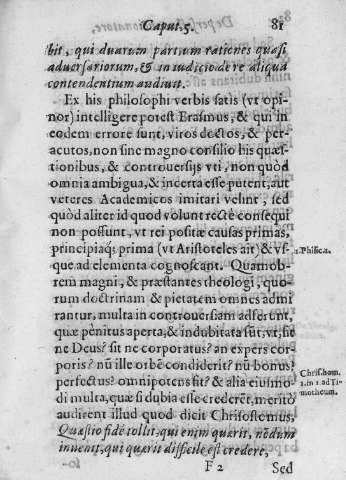 Caput. 5. 81
bit, qui duarum partium rationes quasi
aduersariorum, & in iudicio de re aliqua
contendentium audiuit.
Ex his philosophi verbis satis (vt opi-
nor) intelligere potest Erasmus, & qui in
eodem errore sunt, viros doctos, & per-
acutos, non sine magno consilio his quæs-
tionibus, & controuersijs vti, non quòd
omnia ambigua, & incerta esse putent, aut
veteres Academicos imitari velint, sed
quòd aliter id quod volunt rectè consequi
non possunt, vt rei positæ causas primas,
principiaq; prima (vt Aristoteles ait) & vs-
1. Phisicæ.
que ad elementa cognoscant. Quamob-
rem magni, & præstantes theologi, quo-
rum doctrinam & pietatem omnes admi
rantur, multa in controuersiam adferunt,
quæ pẽnitus aperta, & indubitata sũt, vt, sit
ne Deus? sit ne corporatus? an expers cor
poris? nũ ille orbẽ condiderit? nũ bonus?
perfectus? omnipotens sit? & alia eiusmo-
Chrisṡhom.
1. in 1. ad Ti-
motheum.
di multa, quæ si dubia esse crederẽt, meritò
audirent illud quod dicit Chrisostomus,
Quæstio fidẽ tollit, qui enim quærit, nõdum
inuenit, qui quærit difficile est credere,
F 2 Sed